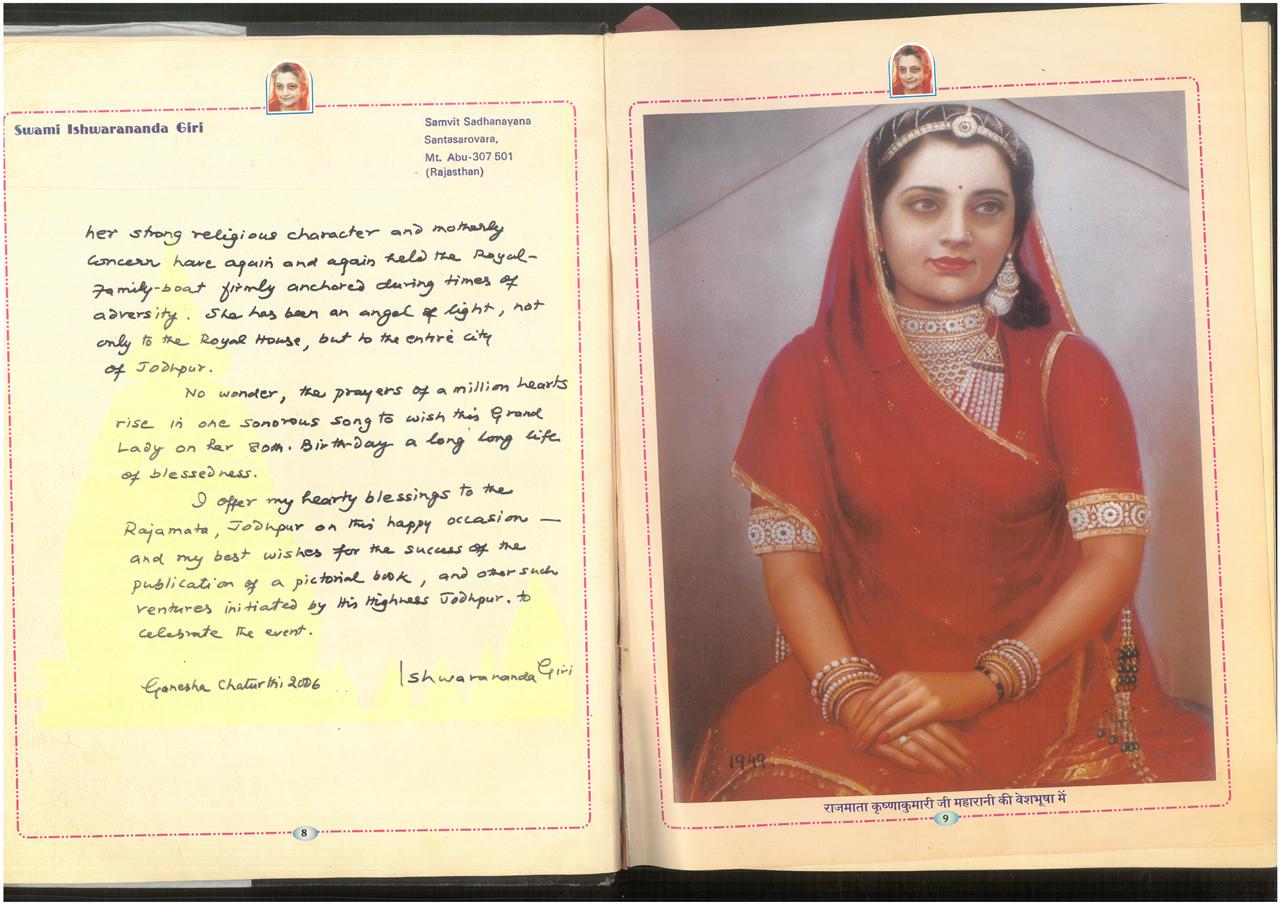 Swami Ishwarananda Giri
Samvit Sadhanayana
Santasarovara,
Mt. Abu-307 501
(Rajasthan)
her strong religious character and motherly
concern have again and again held the Royal-
Family-boat firmly anchored during times of
adversity. She has been an angel of light, not
only to the Royal House, but to the entire city
of Jodhpur.
No wonder, the prayers of a million hearts
rise in one sonorous song to wish this Grand
Lady on her 80th. Birthday a long long life
of blessedness.
I offer my hearty blessings to the
Rajamata, Jodhpur on this happy occasion —
and my best wishes for the success of the
publication of a pictorial book, and other such
ventures initiated by His Highness Jodhpur. to
celebrate the event.
Ganesha Chaturthi 2006
Ishwarananda Giri
8
1949.
राजमाता कृष्णाकुमारी जी महारानी की वेशभूषा में
9